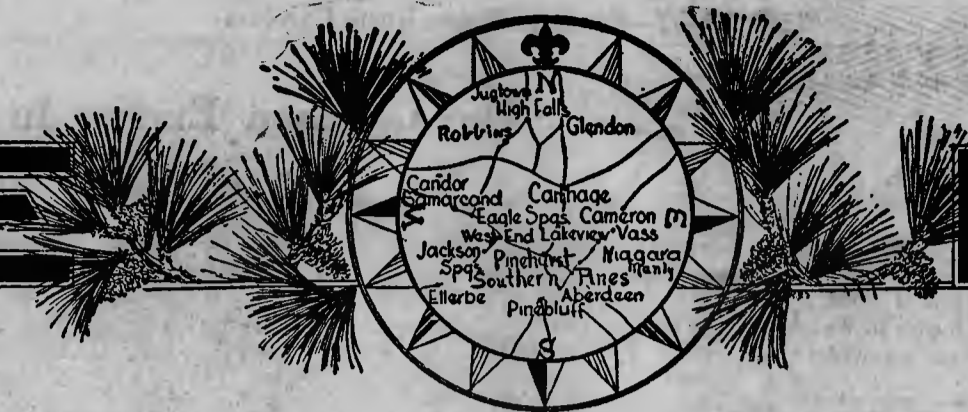 N
Jugtown
High Falls
Robbins Glendon
Candor Carthage
Samarcand
W Eagle Spgs. Cameron E
West End Lakeview Vass
Jackson Pinehurst Niagara
Spgs Manly
Southern Pines
Ellerbe Aberdeen
Pinebluff
S